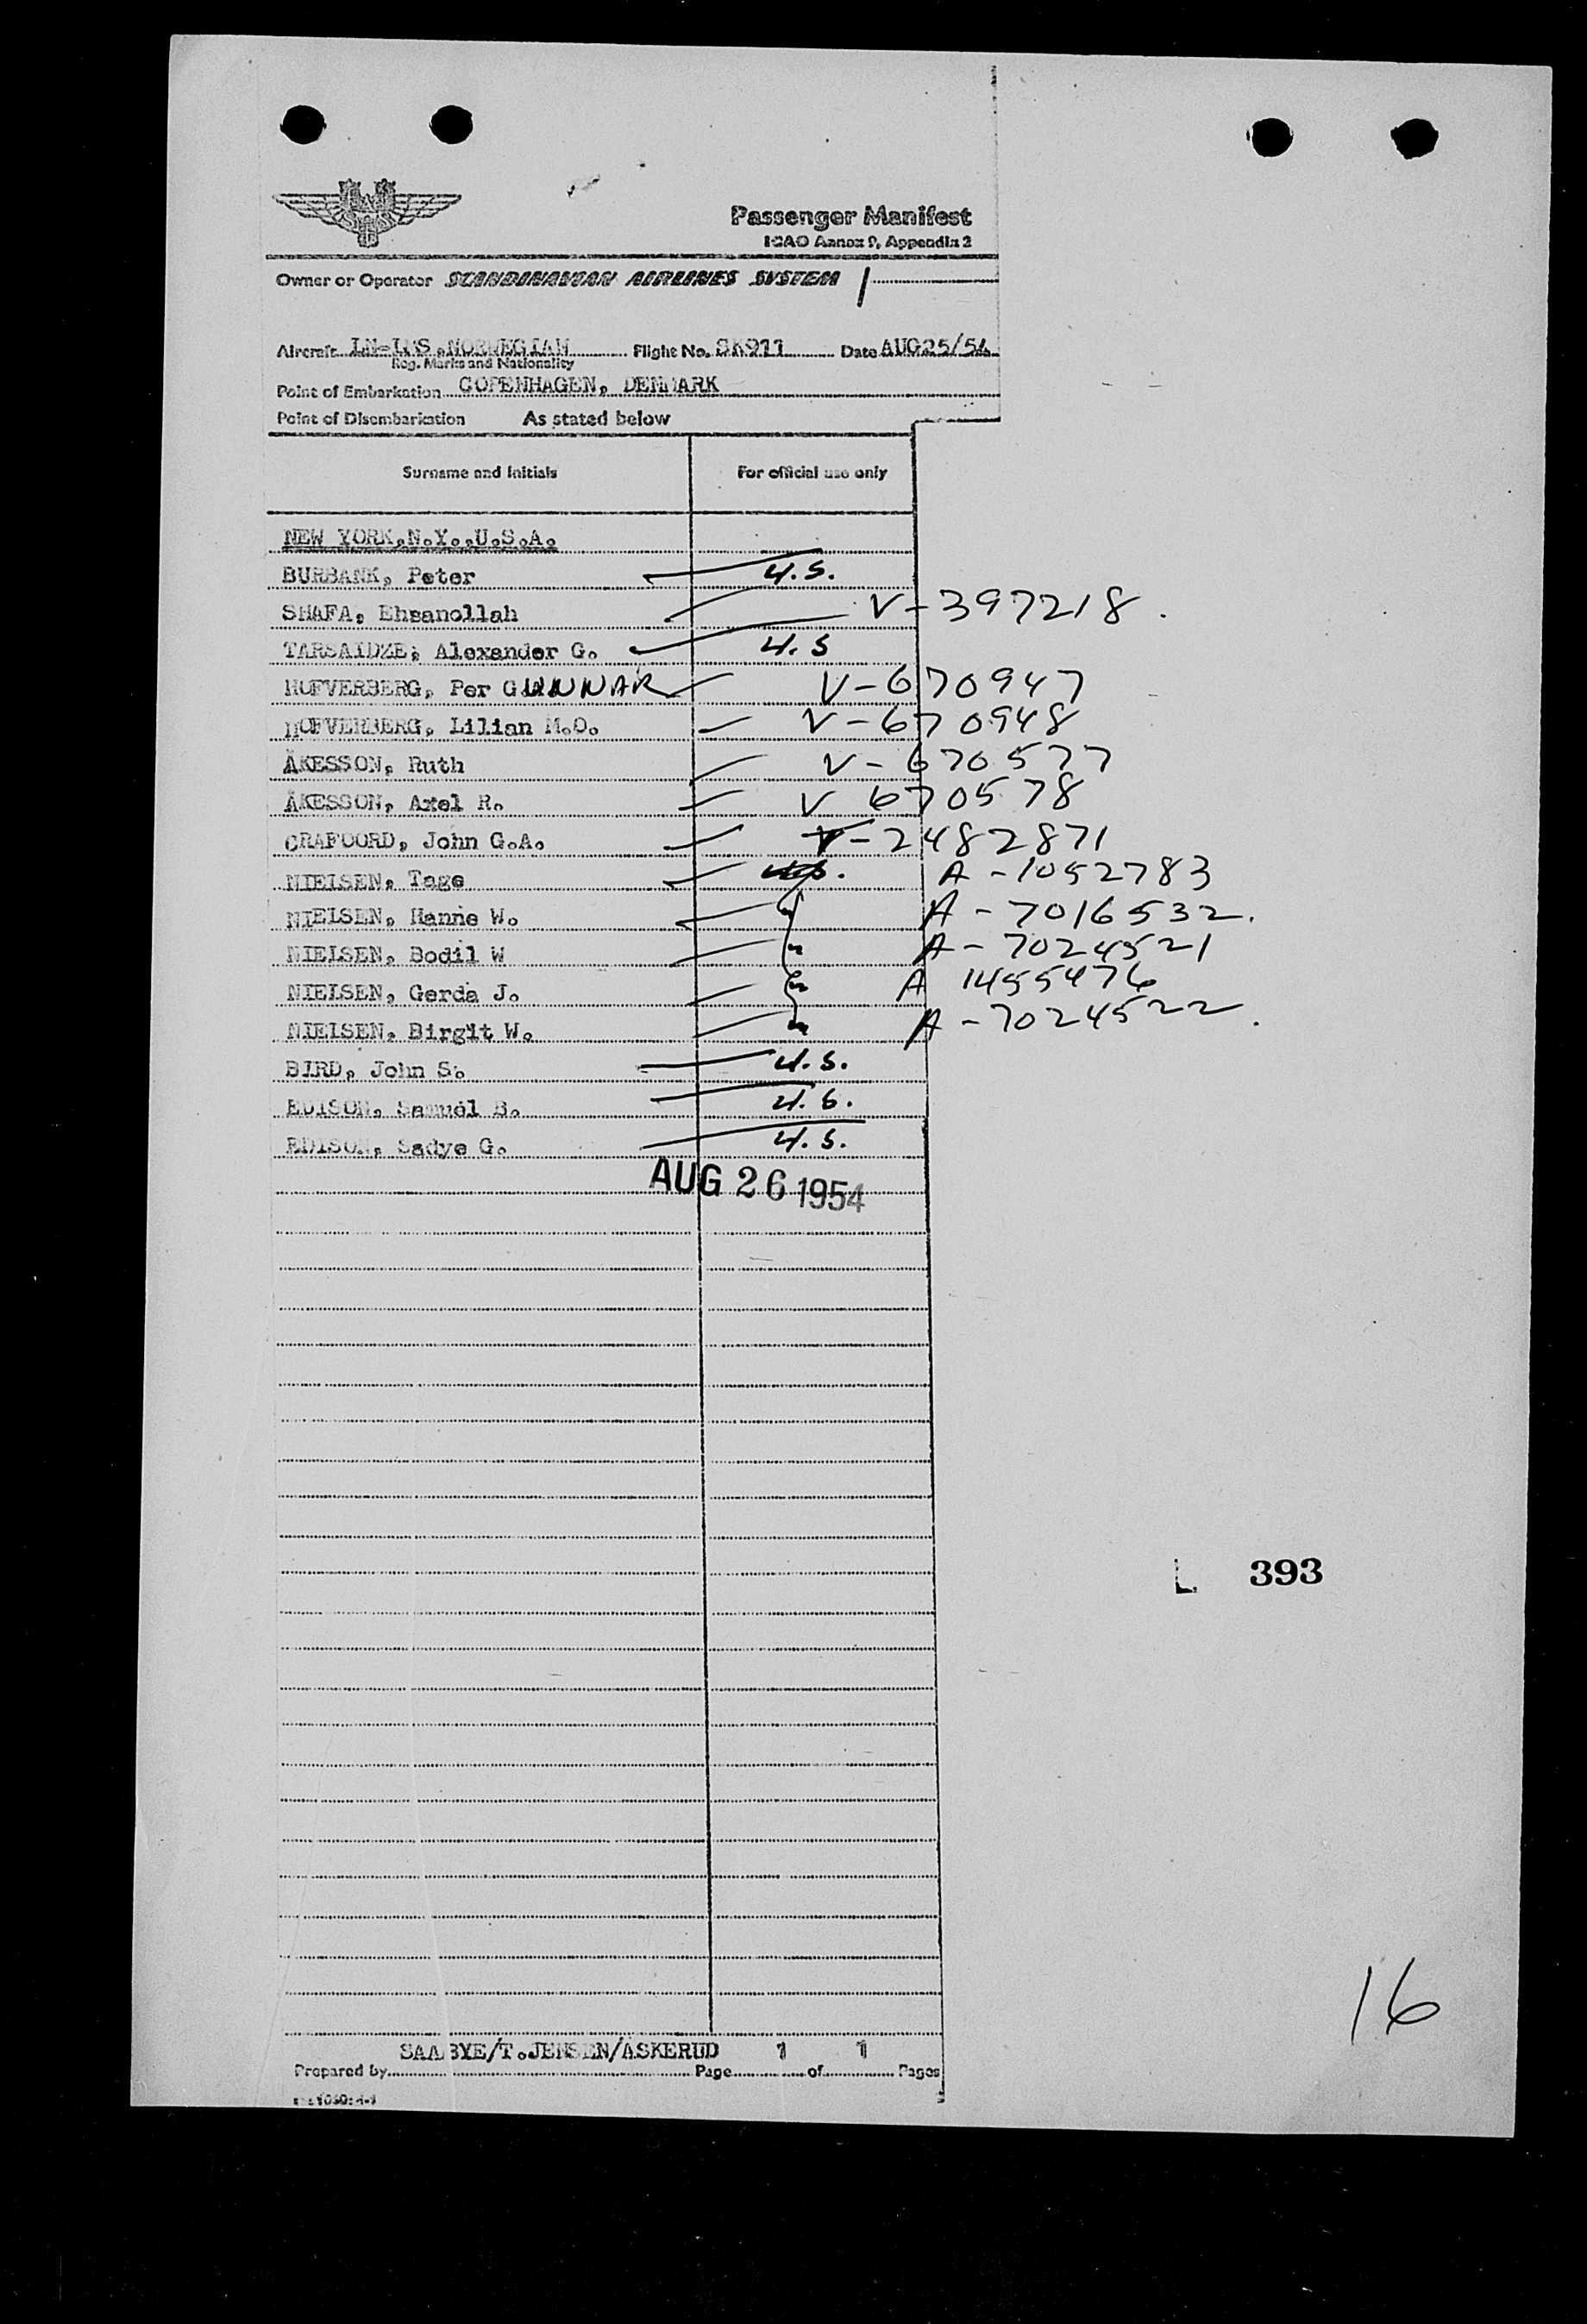 SAS
Passenger Manifest
ICAO Annex 9, Appendix 2
Owner or Operator SCANDINAVIAN AIRLINES SYSTEM
Aircraft NORWEGIAN Flight No. SK911 Date AUG25/54
Reg. Marks and Nationality
Point of Embarkation COPENHAGEN, DENMARK
Point of Disembarkation As stated below
Surname and Initials For official use only
NEW YORK,N.Y.,U.S.A.
BURBANK, Peter U.S.
SHAFA, Ehsanollah V-397218.
TARSAIDZE, Alexander G. U.S
HOFVERBERG, Per GUNNAR V-670947
HOFVERBERG, Lilian M.O. V-670948
ÅKESSON, Ruth V-670577
ÅKESSON, Axel R. V 670578
CRAFOORD, John G.A. V-2482871
NIELSEN, Tage U.S. A-1052783
NIELSEN, Hanne W. A-7016532.
NIELSEN, Bodil W A-7024521
NIELSEN, Gerda J. A 1455476
NIELSEN, Birgit W. A-7024522.
BIRD, John S. U.S.
EDISON, Samuel B. U.S.
EDISON, Sadye G. U.S.
AUG 26 1954
L 393
16
SAABYE/T.JENSEN/ASKERUD 1 1
Prepared by Page of Pages